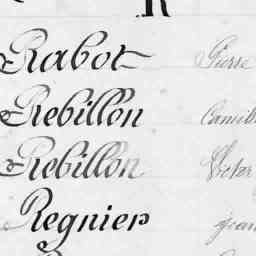 R
Rabot Pierre
Rebillon Camill
Rebillon Victor
Regnier Jean